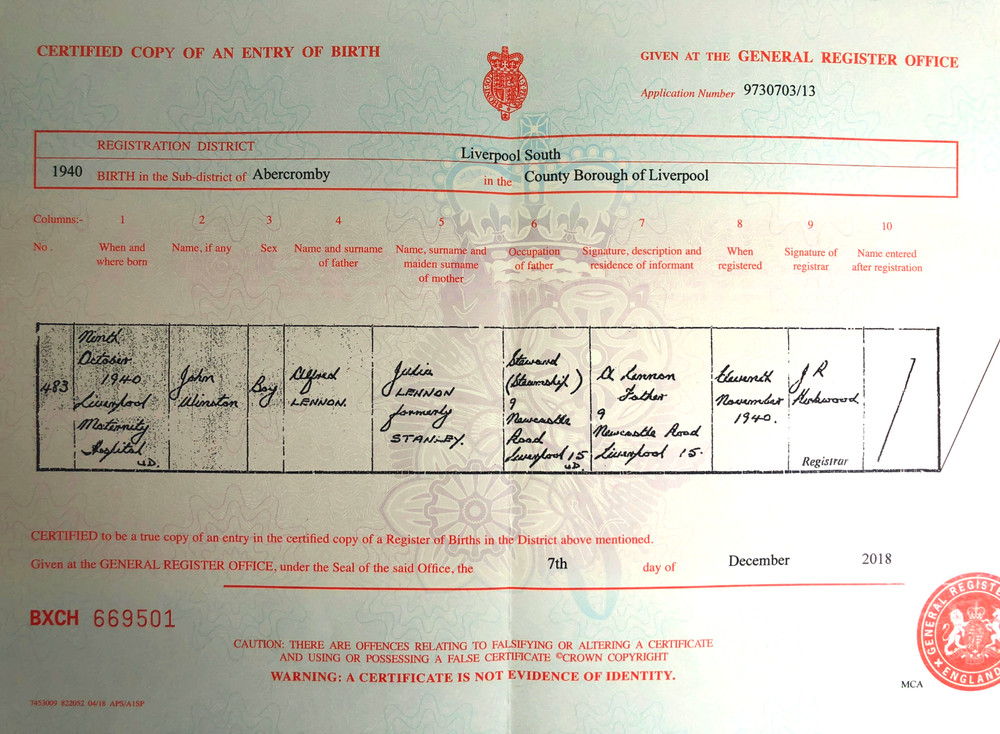 CERTIFIED COPY OF AN ENTRY OF BIRTH
GIVEN AT THE GENERAL REGISTER OFFICE
Application Number 9730703/13
REGISTRATION DISTRICT Liverpool South
1940 BIRTH in the Sub-district of Abercromby in the County Borough of Liverpool
Columns:- 1 2 3 4 5 6 7 8 9 10
No. When and Name, if any Sex Name and surname Name, surname and Occupation Signature, description and When Signature of Name entered
where born of father maiden surname of father residence of informant registered registrar after registration
of mother
483
Ninth
October
1940
Liverpool
Maternity
Hospital
U.D.
John
Winston
Boy
Alfred
LENNON.
Julia
LENNON
formerly
STANLEY.
Steward
(Steamship)
9
Newcastle
Road
Liverpool 15
U.D.
A Lennon
Father
9
Newcastle Road
Liverpool 15.
Eleventh
November
1940.
J R
Kirkwood
Registrar
CERTIFIED to be a true copy of an entry in the certified copy of a Register of Births in the District above mentioned.
Given at the GENERAL REGISTER OFFICE, under the Seal of the said Office, the 7th day of December 2018
BXCH 669501
CAUTION: THERE ARE OFFENCES RELATING TO FALSIFYING OR ALTERING A CERTIFICATE
AND USING OR POSSESSING A FALSE CERTIFICATE ©CROWN COPYRIGHT
WARNING: A CERTIFICATE IS NOT EVIDENCE OF IDENTITY.
GENERAL REGISTER
ENGLAND
MCA
3453009 822052 04/18 APS/A1SP